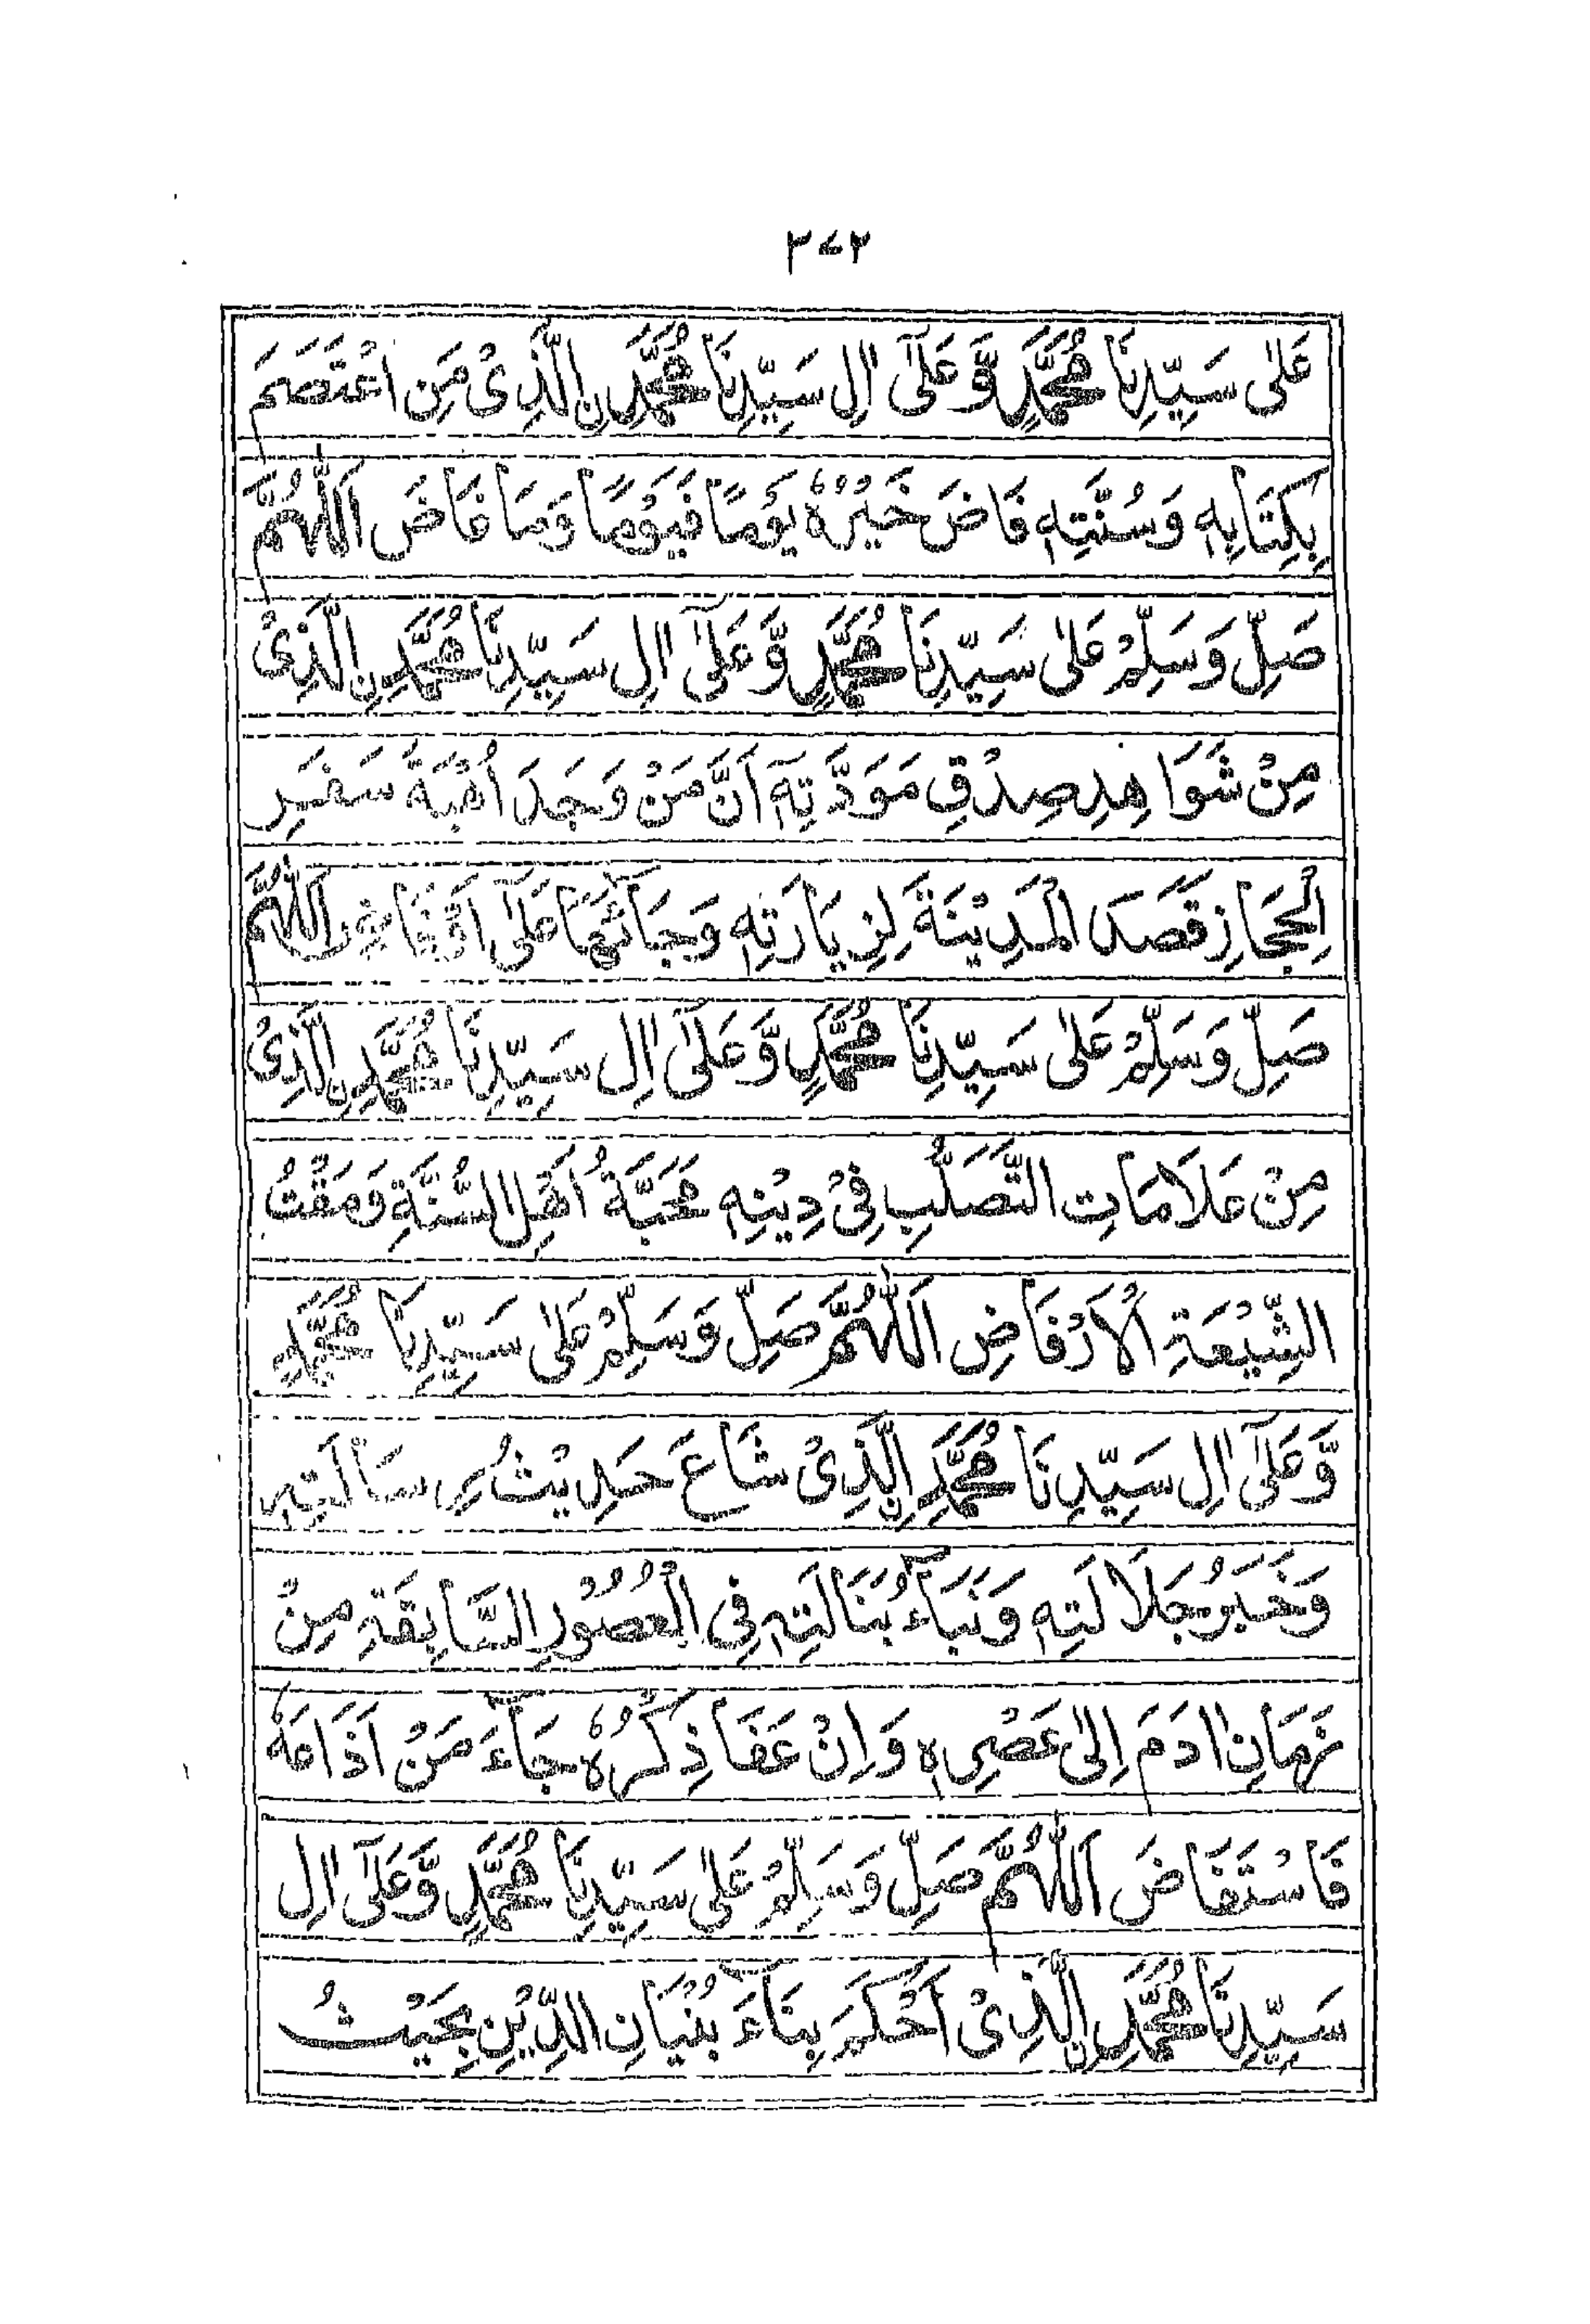 ٣٧٢
عَلٰى سَيِّدِنَا مُحَمَّدٍ وَّعَلٰٓى اٰلِ سَيِّدِنَا مُحَمَّدِنِ الَّذِىْ مَنِ اعْتَصَمَ
بِكِتَابِهٖ وَسُنَّتِهٖ فَاضَ خَيْرُهٗ يَوْمًا فَيَوْمًا وَمَا غَاضَ اَللّٰهُمَّ
صَلِّ وَسَلِّمْ عَلٰى سَيِّدِنَا مُحَمَّدٍ وَّعَلٰٓى اٰلِ سَيِّدِنَا مُحَمَّدِنِ الَّذِىْ
مِنْ شَوَاهِدِ صِدْقِ مَوَدَّتِهٖٓ اَنَّ مَنْ وَجَدَ اُهْبَةَ سَفَرِ
الْحِجَازِ قَصَدَ الْمَدِيْنَةَ لِزِيَارَتِهٖ وَجَاۤئَهَا عَلٰٓى اَللّٰهُمَّ
صَلِّ وَسَلِّمْ عَلٰى سَيِّدِنَا مُحَمَّدٍ وَّعَلٰٓى اٰلِ سَيِّدِنَا مُحَمَّدِنِ الَّذِىْ
مِنْ عَلَامَاتِ التَّصَلُّبِ فِىْ دِيْنِهٖ مَحَبَّةُ اَهْلِ السُّنَّةِ وَمَقْتُ
الشِّيْعَةِ الْاَرْفَاضِ اَللّٰهُمَّ صَلِّ وَسَلِّمْ عَلٰى سَيِّدِنَا مُحَمَّدٍ
وَّعَلٰٓى اٰلِ سَيِّدِنَا مُحَمَّدِنِ الَّذِىْ شَاعَ حَدِيْثُ رِسَالَتِهٖ
وَخَبَرُ جَلَالَتِهٖ وَنَبَاۤءُ نَبَالَتِهٖ فِى الْعُصُوْرِ السَّابِقَةِ مِنْ
زَمَانِ اٰدَمَ اِلٰى عَصْرِهٖ وَاِنْ عَفَا ذِكْرُهٗ جَاۤءَ مَنْ اَذَاعَهٗ
فَاسْتَفَاضَ اَللّٰهُمَّ صَلِّ وَسَلِّمْ عَلٰى سَيِّدِنَا مُحَمَّدٍ وَّعَلٰٓى اٰلِ
سَيِّدِنَا مُحَمَّدِنِ الَّذِىْ اَحْكَمَ بِنَاۤءَ بُنْيَانِ الدِّيْنِ بِحَيْثُ